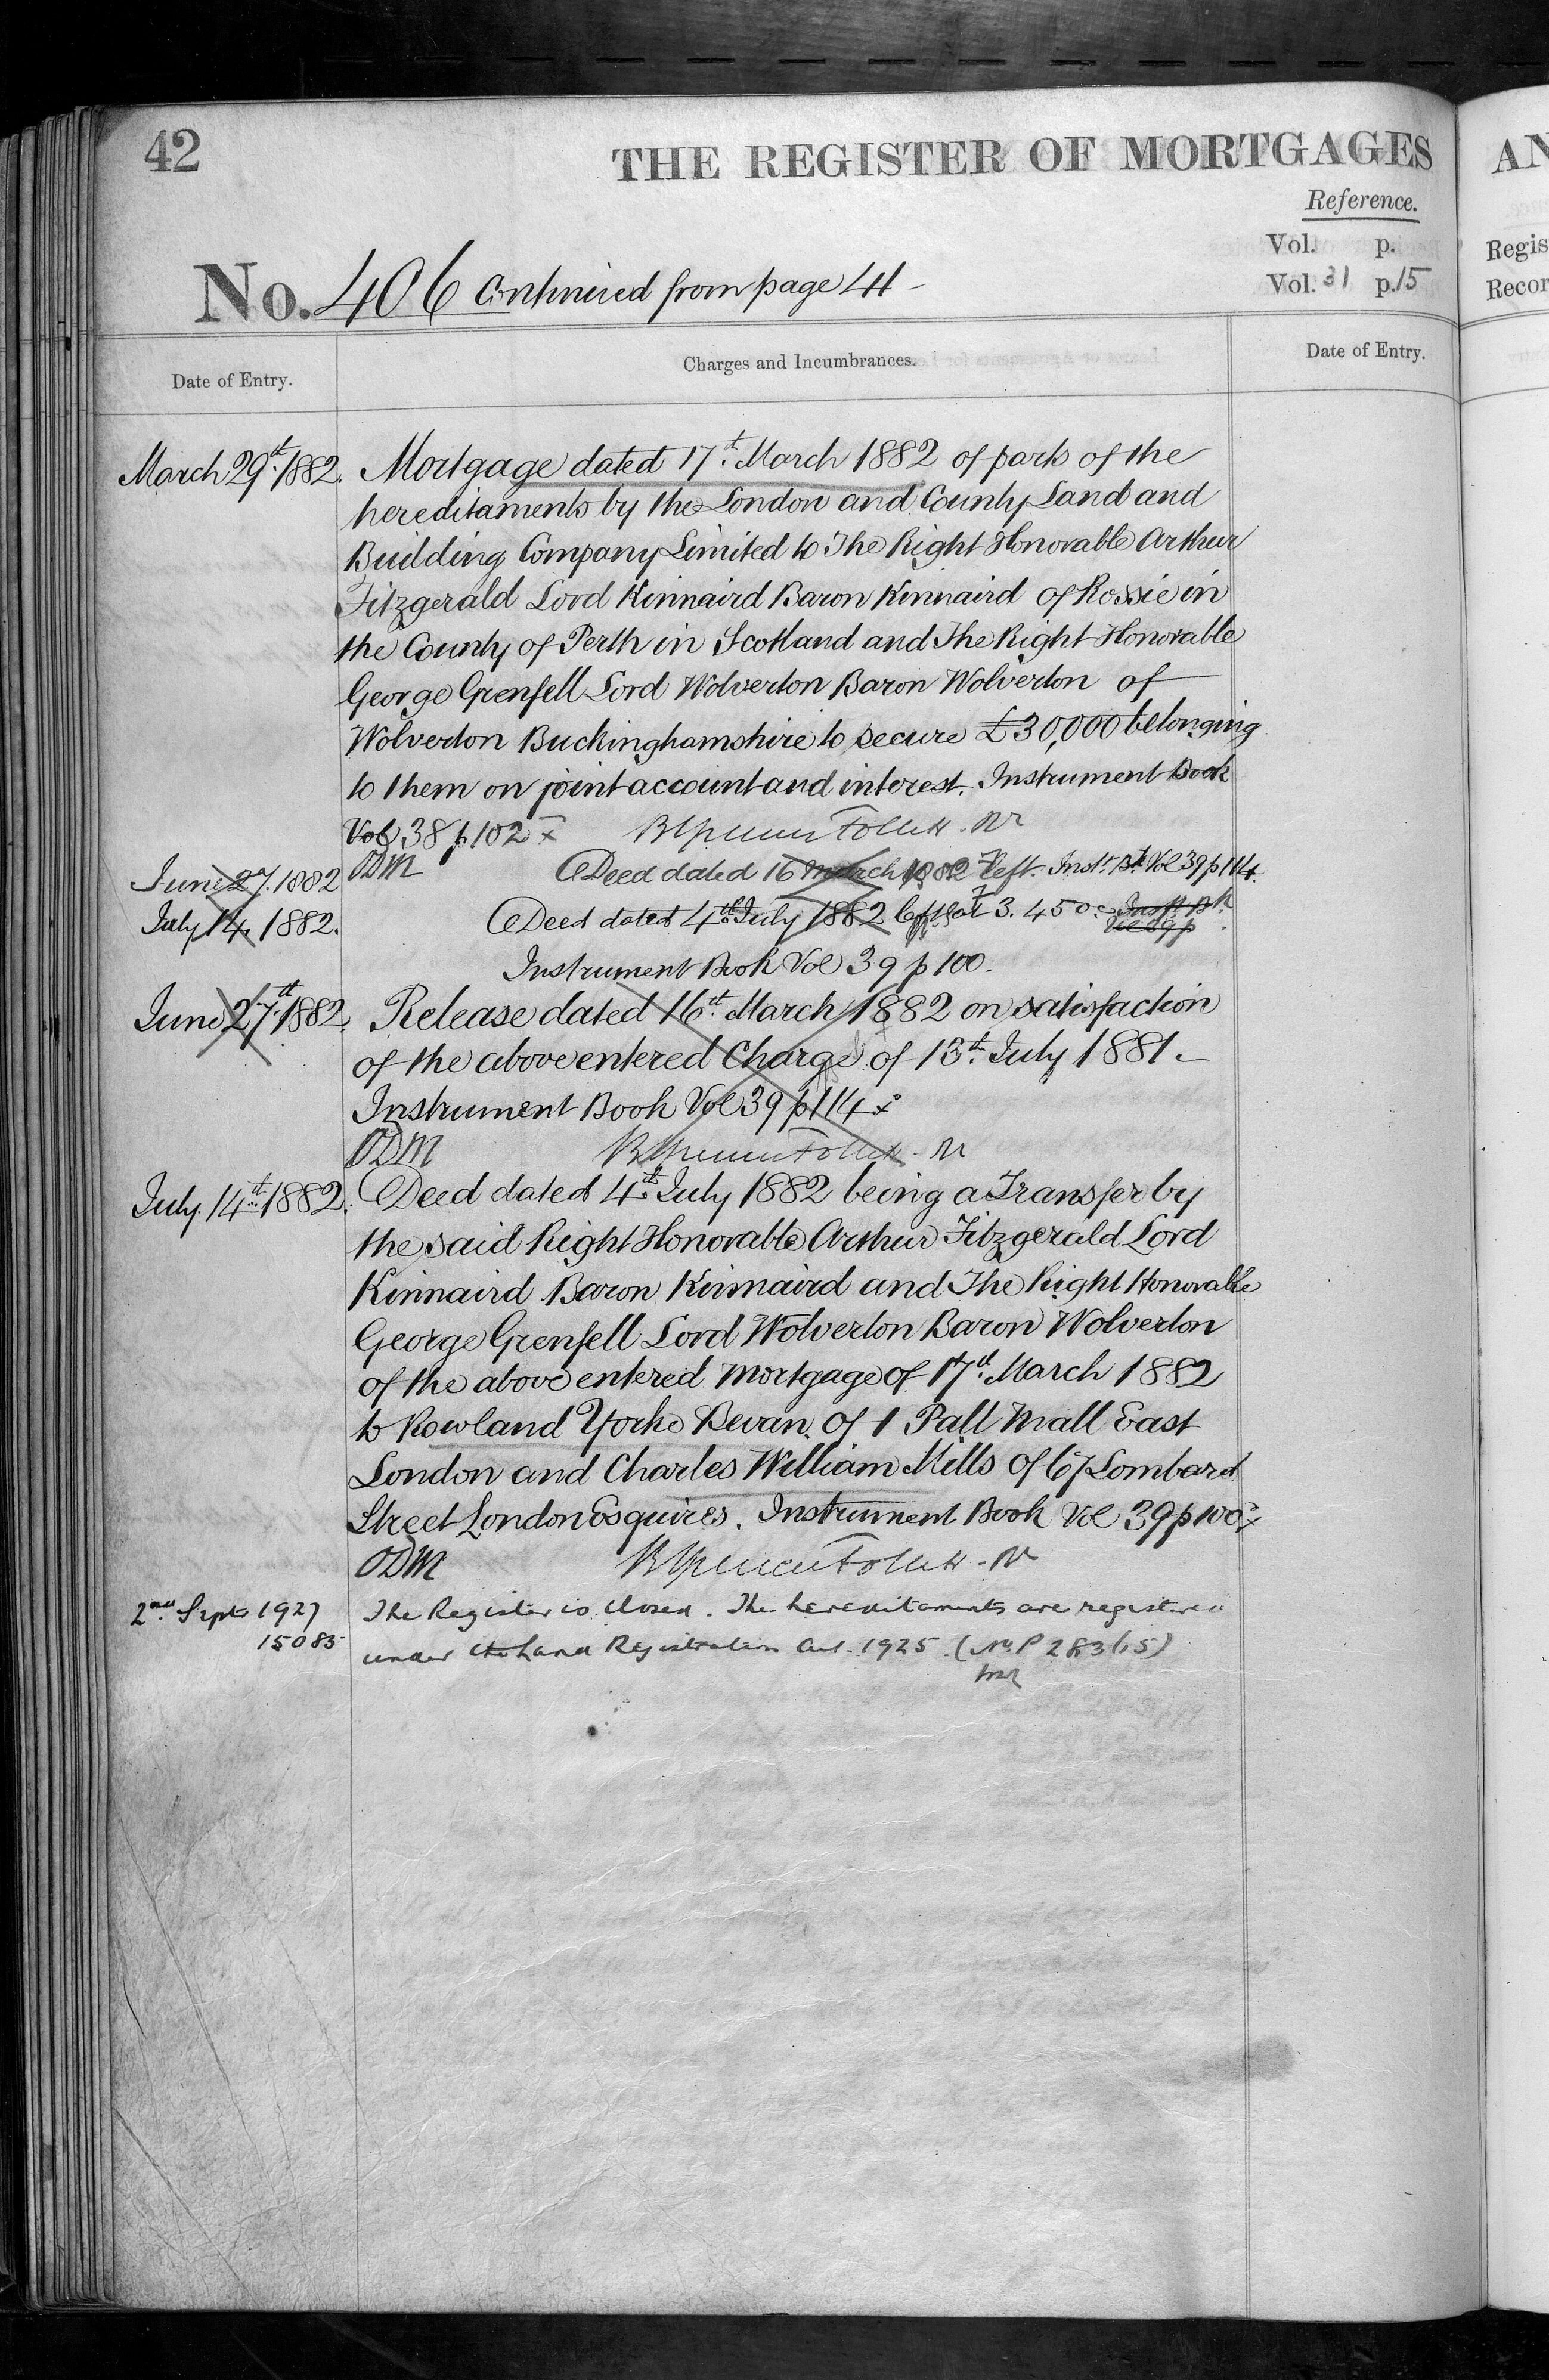 42
THE REGISTER OF MORTGAGES
AN
Reference.
Vol. p.
Regis
Vol. 31 p. 15
Recor
No. 406 Continued from page 41
Date of Entry.
Charges and Incumbrances.
Date of Entry.
March 29th 1882. Mortgage dated 17th March 1882 of parts of the
hereditaments by the London and County Land and
Building Company Limited to The Right Honorable Arthur
Fitzgerald Lord Kinnaird Baron Kinnaird of Rossie in
the County of Perth in Scotland and The Right Honorable
George Grenfell Lord Wolverton Baron Wolverton of
Wolverton Buckinghamshire to secure £30,000 belonging
to them on joint account and interest. Instrument Book
Vol 38 p 102
ODM
June 27. 1882 Deed dated 16 March 1882 left. Inst. Bk Vol 39 p 114.
July 14, 1882. Deed dated 4th July 1882 left at 3.45 Inst. Bk
Vol 39 p
Instrument Book Vol 39 p 100.
June 27th 1882. Release dated 16th March 1882 on satisfaction
of the above entered Charge of 13th July 1881.
Instrument Book Vol 39 p 114
ODM
July 14th 1882. Deed dated 4th July 1882 being a Transfer by
the said Right Honorable Arthur Fitzgerald Lord
Kinnaird Baron Kinnaird and The Right Honorable
George Grenfell Lord Wolverton Baron Wolverton
of the above entered Mortgage of 17th March 1882
to Rowland Yorke Bevan of 1 Pall Mall East
London and Charles William Mills of 67 Lombard
Street London Esquires. Instrument Book Vol 39 p 100
ODM
2nd Sept 1927 The Register is closed. The hereditaments are registered
15085 under the Land Registration Act. 1925. (No. P 28365)